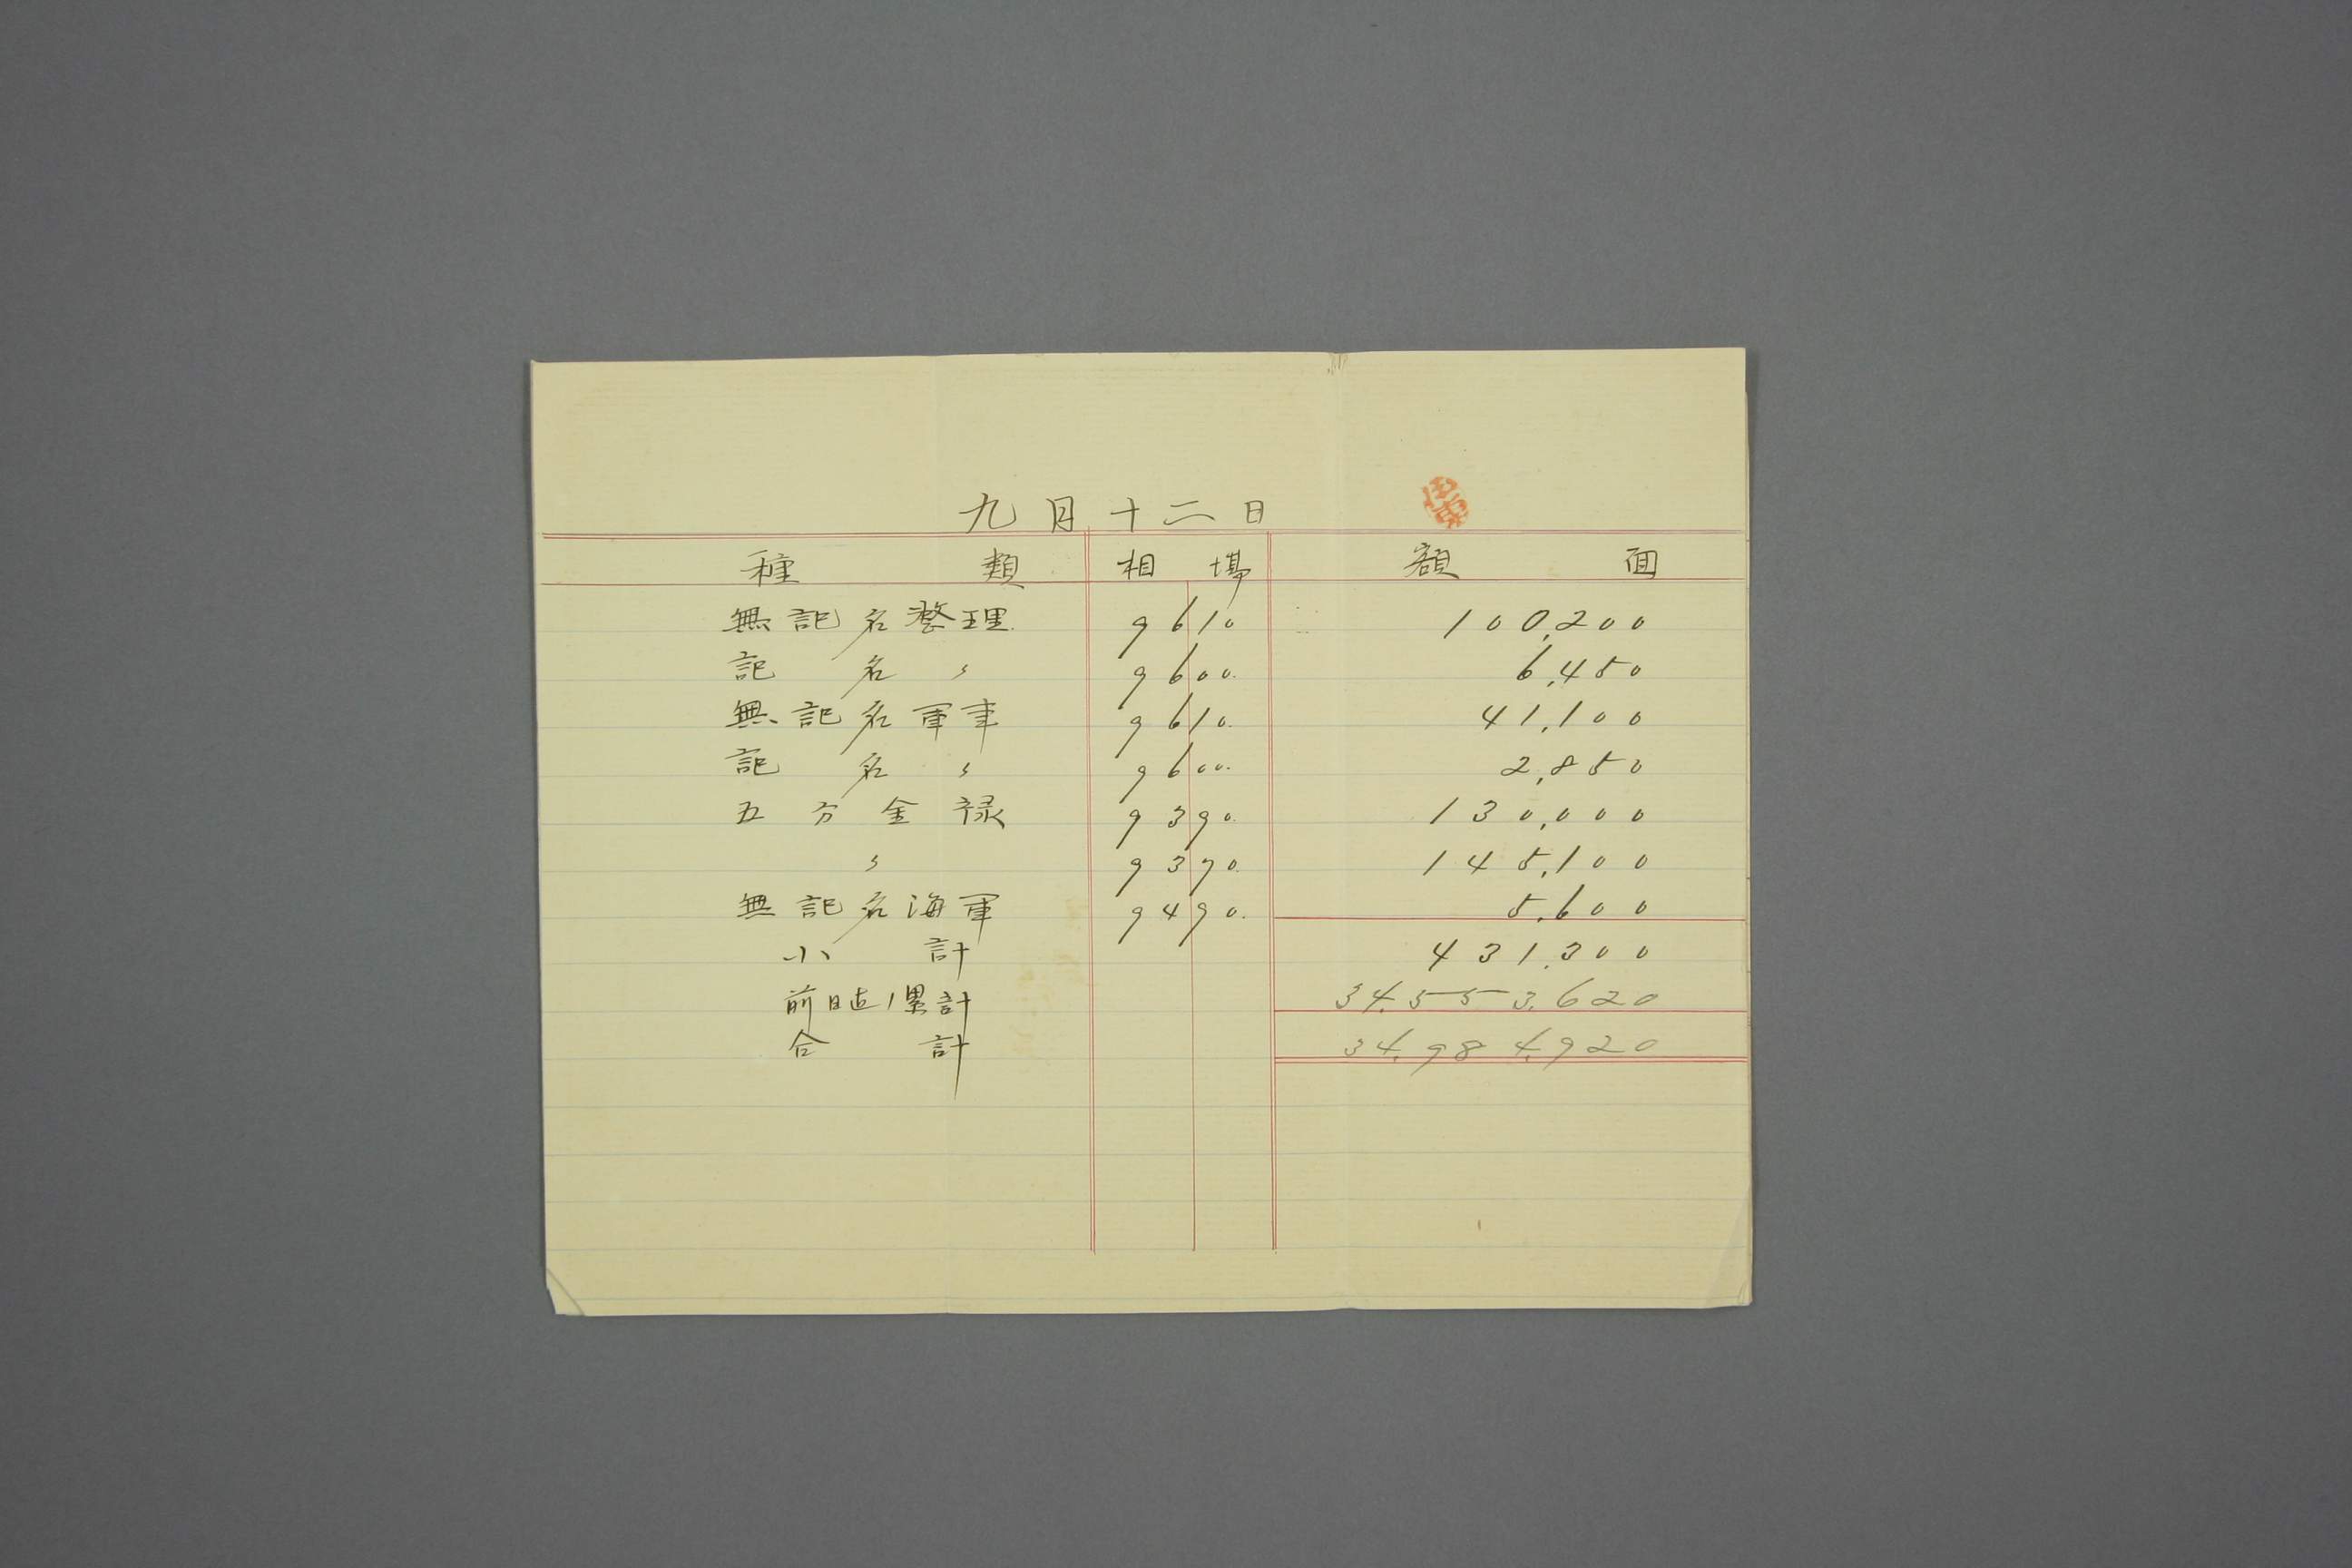 九月十二日
種類 相場 額面
無記名整理 9610 100,200
記名〃 9600. 6,450
無記名軍事 9610. 41,100
記名〃 9600. 2,850
五分金禄 9390. 130,000
〃 9370. 145,100
無記名海軍 9490. 5,600
小計 431,300
前日迄ノ累計 34,553,620
合計 34,984,920